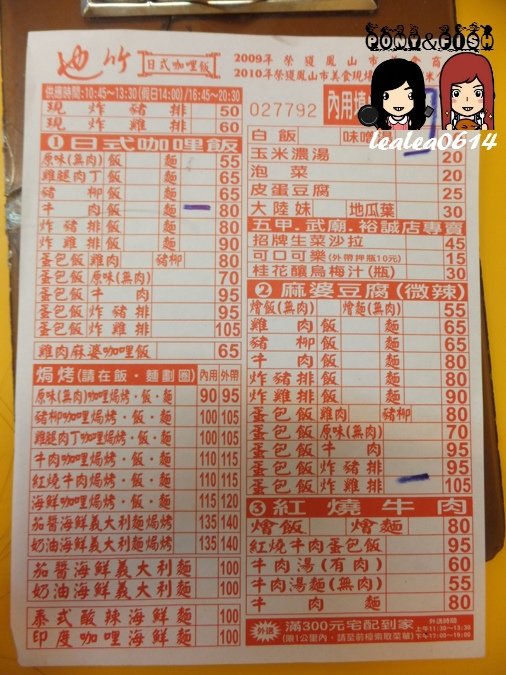 池竹 日式咖哩飯
2009年 榮獲鳳山市美食商
2010年榮獲鳳山市美食現場 米
POMY&FISH
lealea0614
供應時間:10:45~13:30(假日14:00)/16:45~20:30
現炸豬排 50
現炸雞排 60
027792 內用
❶日式咖哩飯
原味(無肉)飯 麵 55
雞腿肉丁飯 麵 65
豬柳飯 麵 65
牛肉飯 麵 80
炸豬排飯 麵 80
炸雞排飯 麵 90
蛋包飯雞肉 豬柳 80
蛋包飯原味(無肉) 70
蛋包飯牛肉 95
蛋包飯炸豬排 95
蛋包飯炸雞排 105
雞肉麻婆咖哩飯 65
焗烤(請在飯・麵劃圈) 內用 外帶
原味(無肉)咖哩焗烤・飯・麵 90 95
豬柳咖哩焗烤・飯・麵 100 105
雞腿肉丁咖哩焗烤・飯・麵 100 105
牛肉咖哩焗烤・飯・麵 110 115
紅燒牛肉焗烤・飯・麵 110 115
海鮮咖哩焗烤・飯・麵 115 120
茄醬海鮮義大利麵焗烤 135 140
奶油海鮮義大利麵焗烤 135 140
茄醬海鮮義大利麵 100
奶油海鮮義大利麵 100
泰式酸辣海鮮麵 100
印度咖哩海鮮麵 100
白飯 味噌湯
玉米濃湯 20
泡菜 20
皮蛋豆腐 25
大陸妹 地瓜葉 30
五甲.武廟.裕誠店專賣
招牌生菜沙拉 45
可口可樂(外帶押瓶10元) 15
桂花釀烏梅汁(瓶) 30
❷麻婆豆腐(微辣)
燴飯(無肉) 燴麵(無肉) 55
雞肉飯 麵 65
豬柳飯 麵 65
牛肉飯 麵 80
炸豬排飯 麵 80
炸雞排飯 麵 90
蛋包飯雞肉 豬柳 80
蛋包飯原味(無肉) 70
蛋包飯牛肉 95
蛋包飯炸豬排 95
蛋包飯炸雞排 105
❸紅燒牛肉
燴飯 燴麵 80
紅燒牛肉蛋包飯 95
牛肉湯(有肉) 60
牛肉湯麵(無肉) 55
牛肉麵 80
外送 滿300元宅配到家
(限1公里內,請至前檯索取菜單)
外送時間
上午11:30~13:30
下午17:00~19:00